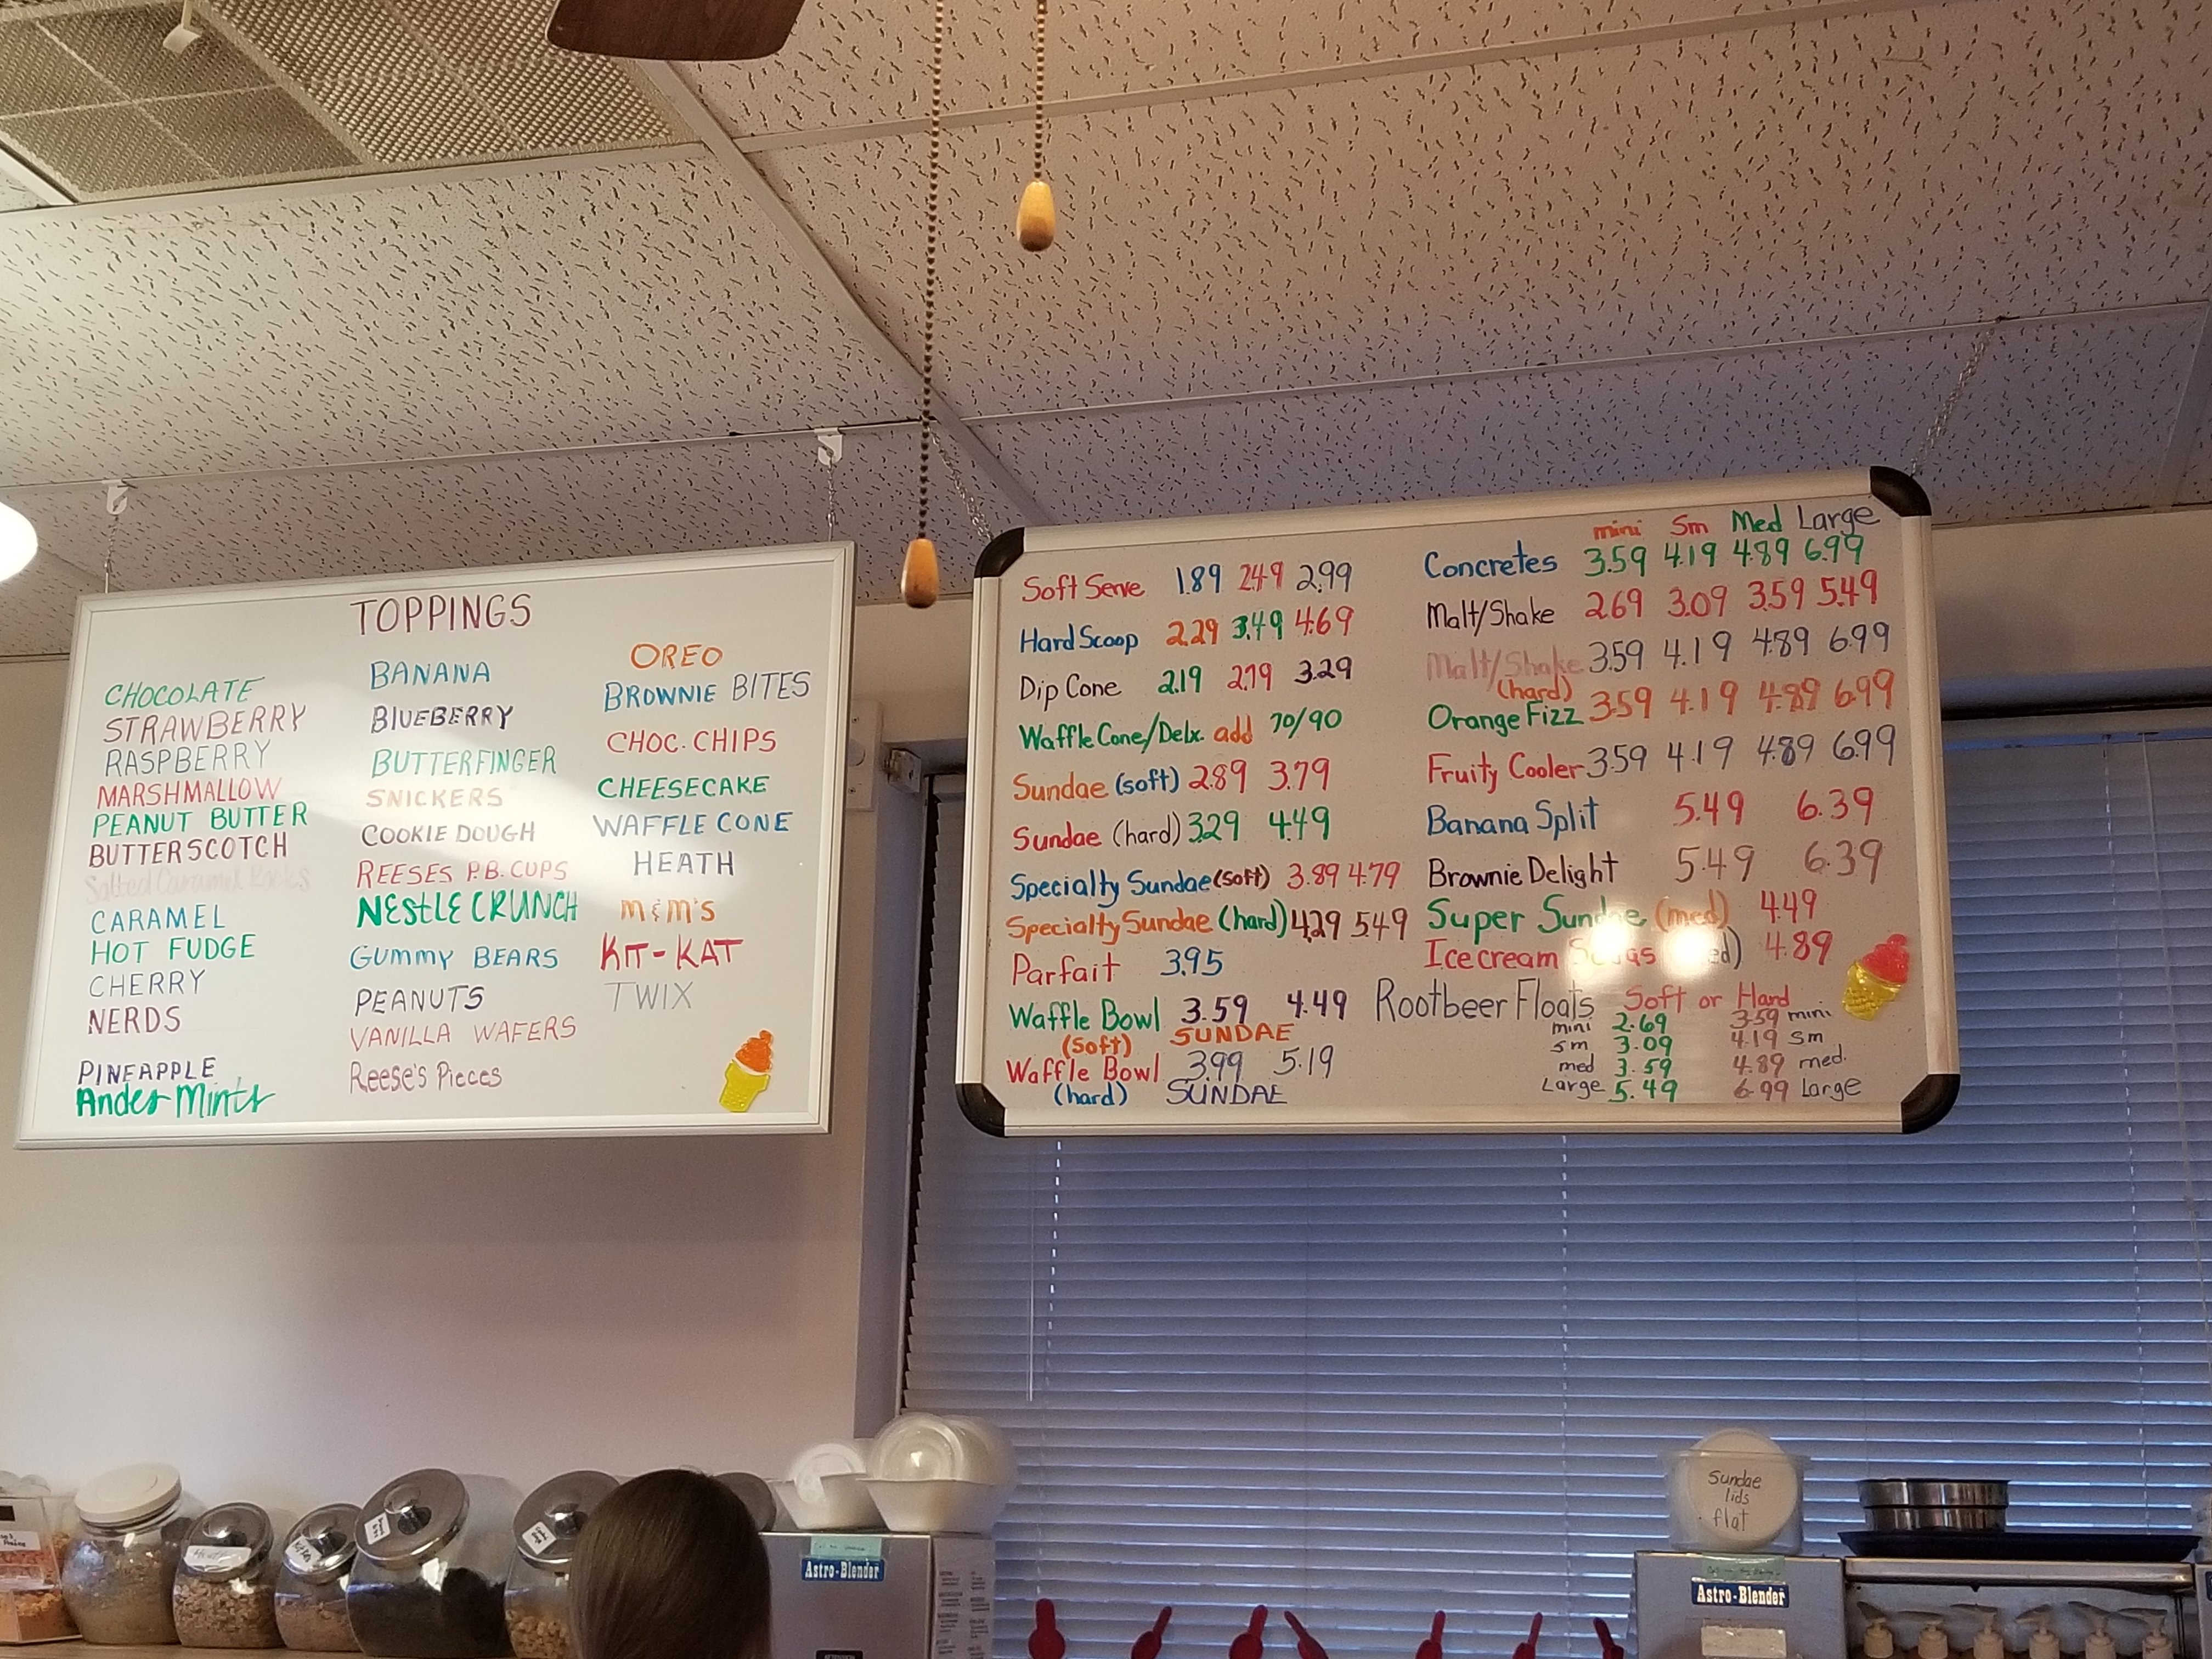 TOPPINGS
CHOCOLATE
STRAWBERRY
RASPBERRY
MARSHMALLOW
PEANUT BUTTER
BUTTERSCOTCH
Salted Caramel Rocks
CARAMEL
HOT FUDGE
CHERRY
NERDS
PINEAPPLE
Andes Mints
BANANA
BLUEBERRY
BUTTERFINGER
SNICKERS
COOKIE DOUGH
REESES P.B. CUPS
NESTLE CRUNCH
GUMMY BEARS
PEANUTS
VANILLA WAFERS
Reese's Pieces
OREO
BROWNIE BITES
CHOC. CHIPS
CHEESECAKE
WAFFLE CONE
HEATH
M&M'S
KIT-KAT
TWIX
Soft Serve 1.89 2.49 2.99
Hard Scoop 2.29 3.49 4.69
Dip Cone 2.19 2.79 3.29
Waffle Cone/Delx. add 70/90
Sundae (soft) 2.89 3.79
Sundae (hard) 3.29 4.49
Specialty Sundae (soft) 3.89 4.79
Specialty Sundae (hard) 4.29 5.49
Parfait 3.95
Waffle Bowl 3.59 4.49
(soft) SUNDAE
Waffle Bowl 3.99 5.19
(hard) SUNDAE
mini Sm Med Large
Concretes 3.59 4.19 4.89 6.99
Malt/Shake 2.69 3.09 3.59 5.49
Malt/Shake 3.59 4.19 4.89 6.99
(hard)
Orange Fizz 3.59 4.19 4.89 6.99
Fruity Cooler 3.59 4.19 4.89 6.99
Banana Split 5.49 6.39
Brownie Delight 5.49 6.39
Super Sundae (med) 4.49
Icecream 4.89
Rootbeer Floats Soft or Hard
mini 2.69 3.59 mini
sm 3.09 4.19 sm
med 3.59 4.89 med.
Large 5.49 6.99 Large
Sundae
lids
flat
Astro-Blender
Astro-Blender